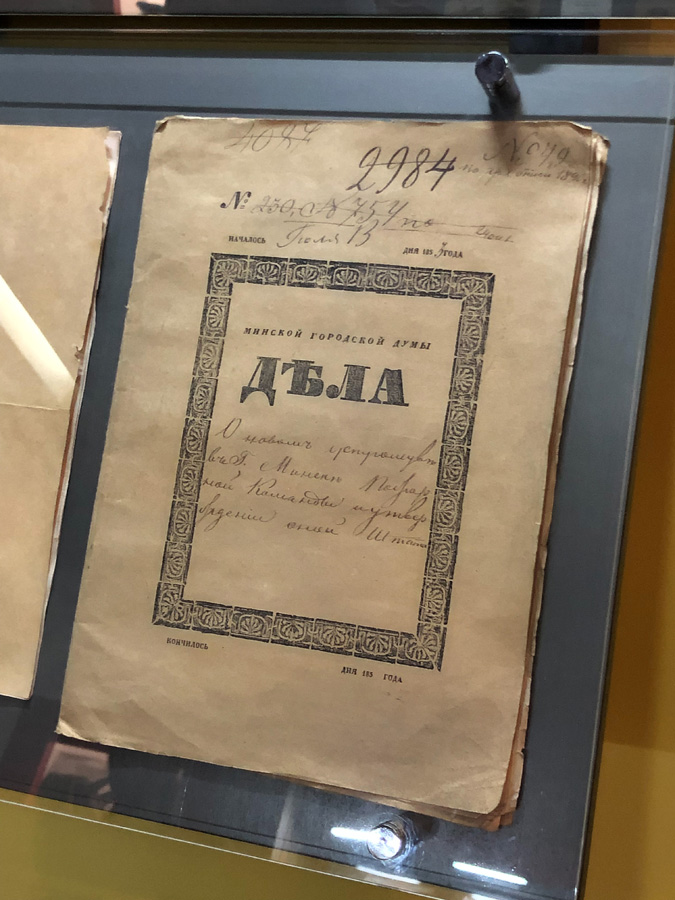 4084
2984
№ 754 по
НАЧАЛОСЬ Июля 13 ДНЯ 185 ГОДА
МИНСКОЙ ГОРОДСКОЙ ДУМЫ
ДѢЛА
О новомъ
въ Г. Минскѣ Пожар
ной Команды и утвер
ждении оной Штата
КОНЧИЛОСЬ
ДНЯ 185 ГОДА